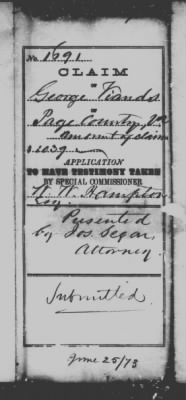 No. 1691
CLAIM
OF
George Viands
OF
Page County, Va
Amount of claim
$1039
APPLICATION
TO HAVE TESTIMONY TAKEN
BY SPECIAL COMMISSIONER
Hampton
Esq
Presented
by Jos. Segar,
Attorney.
Submitted.
June 25/73